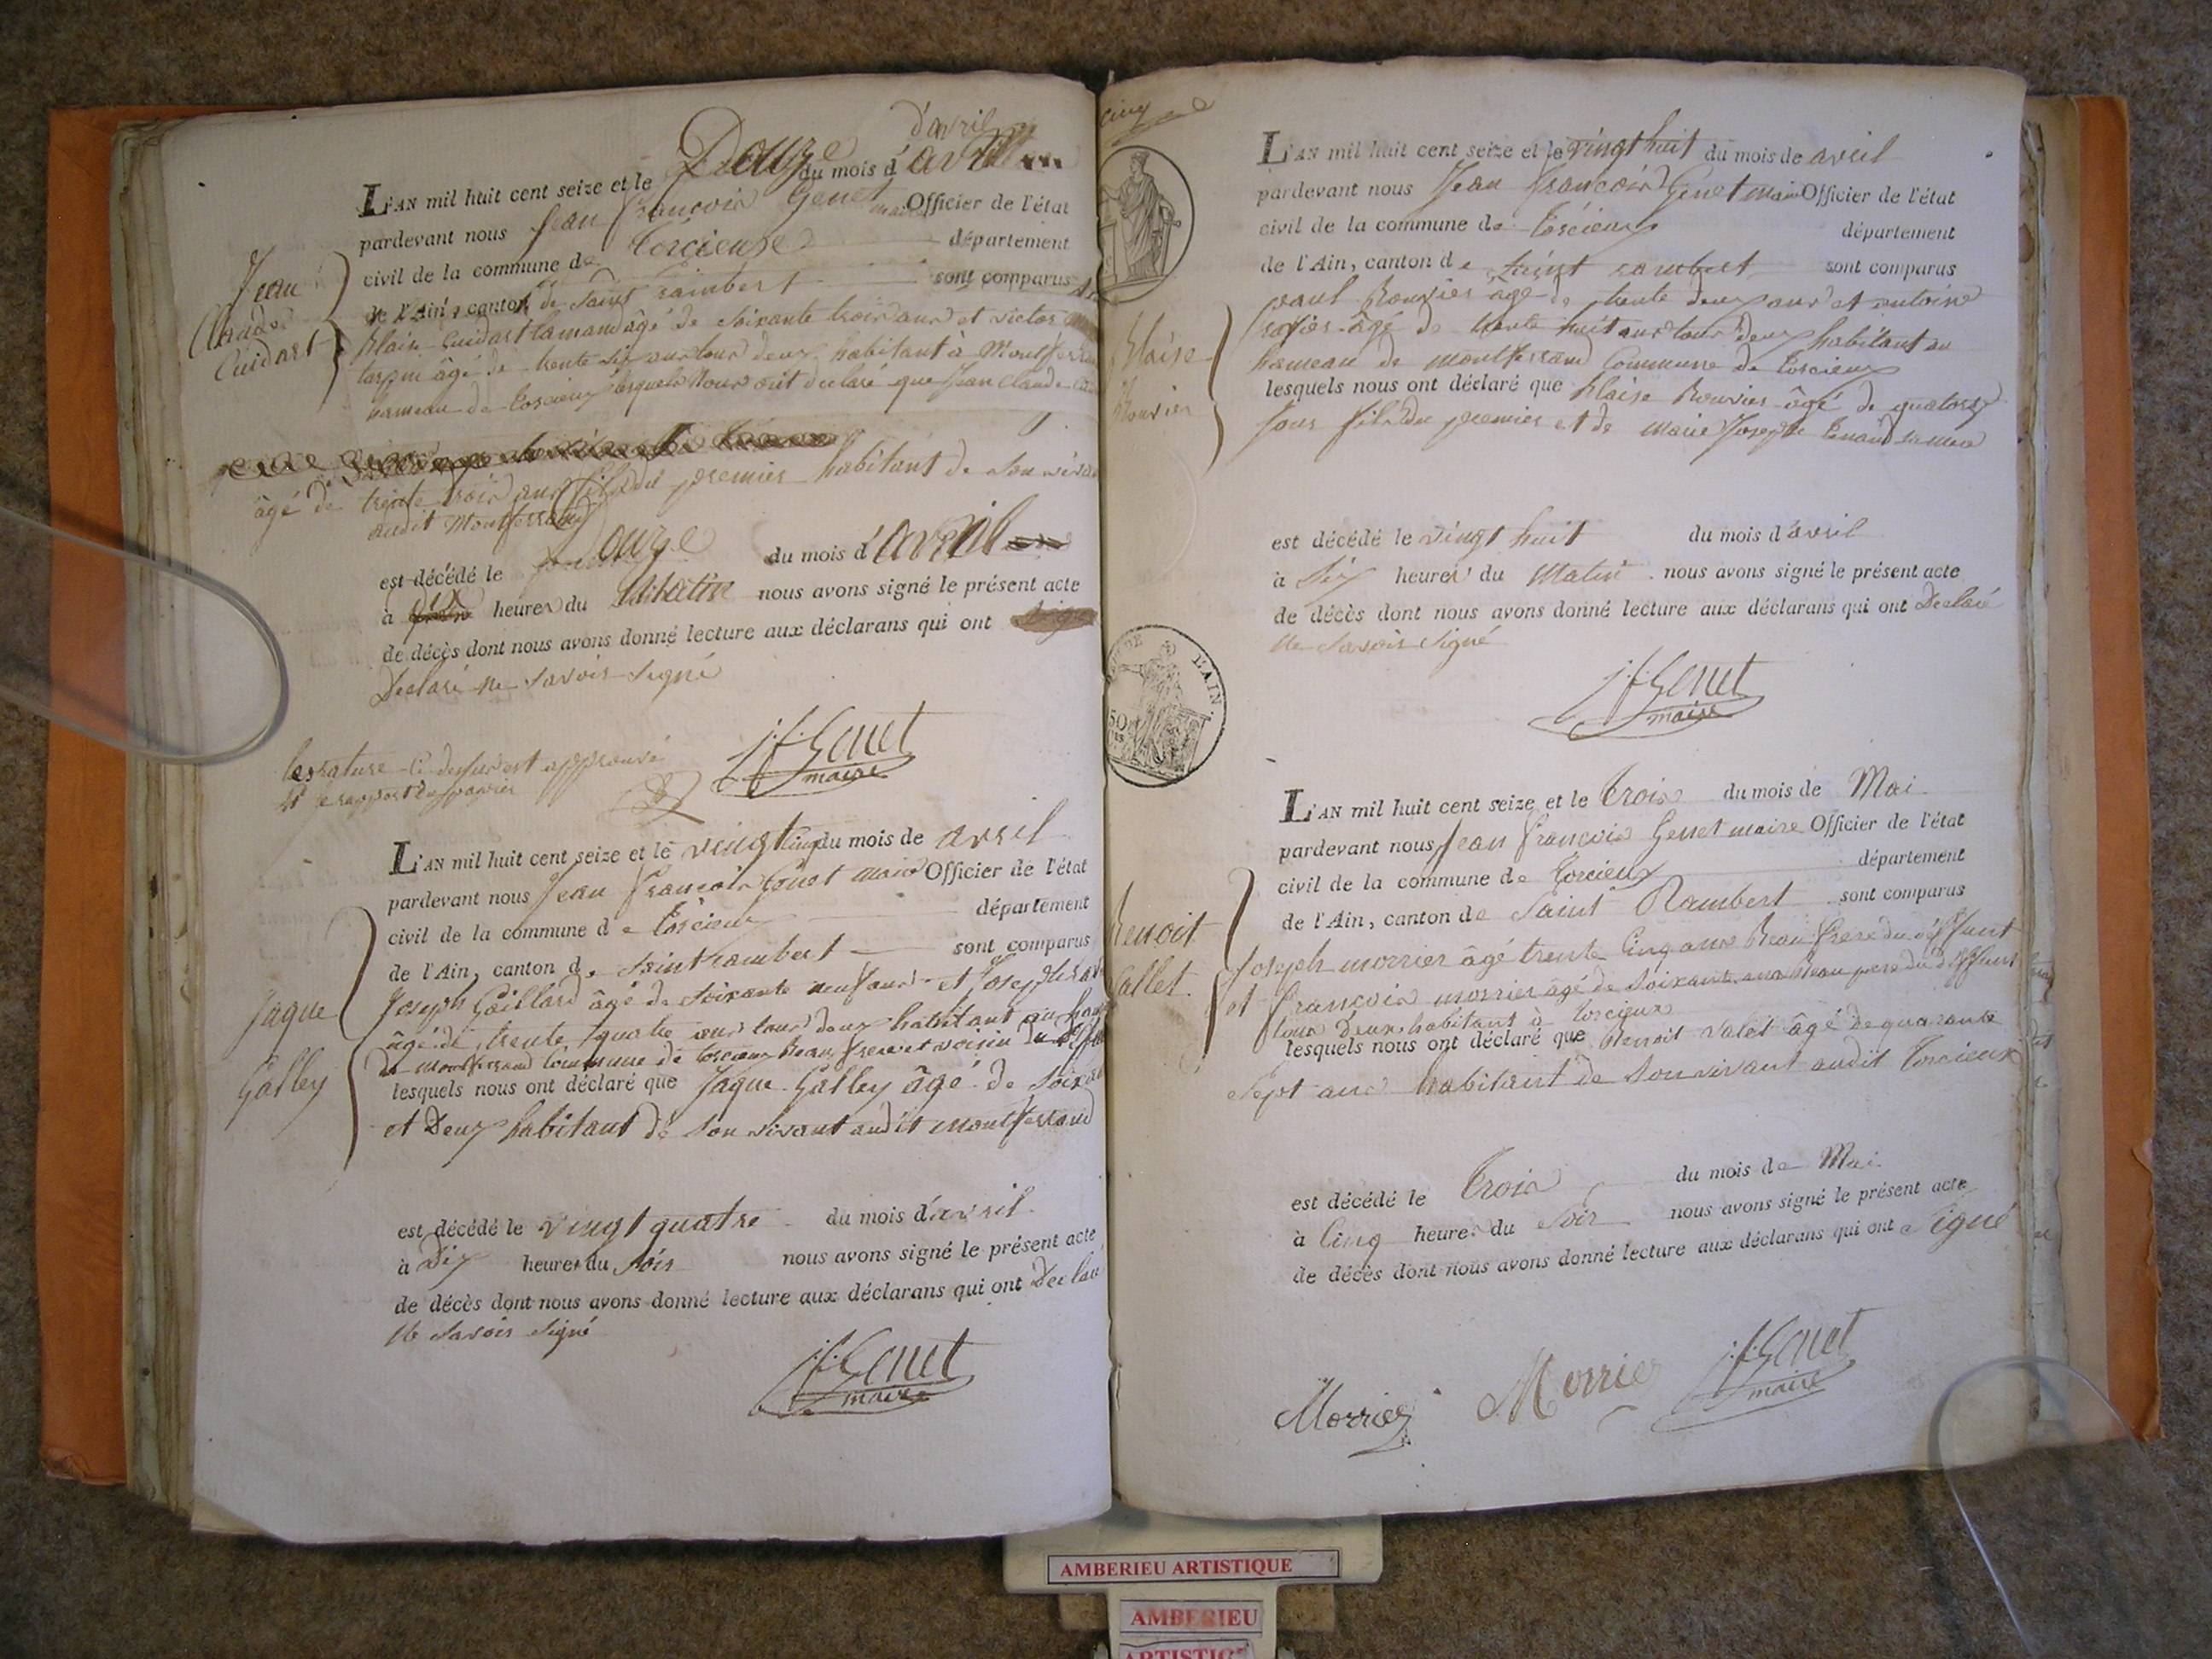 d'avril
L'AN mil huit cent seize et le Douze du mois d'avril
pardevant nous Jean françois Genet maire Officier de l'état
civil de la commune de Torcieux département
de l'Ain, canton de saint rambert sont comparus
Blaise Cuidart âgé de soixante trois ans et victor
âgé de trente six ans tous deux habitant à Montferrand
hameau de torcieux lesquels nous ont declaré que Jean Claude
Jean
Claude
Cuidart
âgé de trente trois ans fils du premier habitant de son vivant
audit Montferrand
est décédé le Douze du mois d'avril
à heures du Matin nous avons signé le présent acte
de décès dont nous avons donné lecture aux déclarans qui ont
Declaré ne savoir signé
la rature ci dessus est approuvé
J. f. Genet
maire
L'AN mil huit cent seize et le vingt cinq du mois de avril
pardevant nous Jean françois Genet maire Officier de l'état
civil de la commune de torcieux département
de l'Ain, canton de saint rambert sont comparus
Joseph Gaillard âgé de soixante neuf ans et Joseph
âgé de trente quatre ans tous deux habitant au
de montferrand commune de torcieux Beau frere et voisin du
lesquels nous ont déclaré que Jaque Galley âgé de
et Deux habitant de son vivant audit montferrand
Jaque
Galley
est décédé le vingt quatre du mois d'avril
à Dix heures du soir nous avons signé le présent acte
de décès dont nous avons donné lecture aux déclarans qui ont Declaré
ne savoir signé
J. f. Genet
maire
cinq
L'AN mil huit cent seize et le vingt huit du mois de avril
pardevant nous Jean françois Genet maire Officier de l'état
civil de la commune de torcieux département
de l'Ain, canton de saint rambert sont comparus
paul Rouvier âgé de trente deux ans et antoine
âgé de trente huit ans tous deux habitant au
hameau de montferrand Commune de torcieux
lesquels nous ont déclaré que Blaise Rouvier âgé de quatorze
jour fils du premier et de marie Josephe
Blaise
Rouvier
est décédé le vingt huit du mois d'avril
à six heures du Matin nous avons signé le présent acte
de décès dont nous avons donné lecture aux déclarans qui ont Declaré
ne savoir signé
J. f. Genet
maire
L'AIN.
50
L'AN mil huit cent seize et le trois du mois de Mai
pardevant nous Jean françois Genet maire Officier de l'état
civil de la commune de torcieux département
de l'Ain, canton de Saint Rambert sont comparus
Joseph morrier âgé trente Cinq ans Beau frere du deffunt
et françois morrier âgé de soixante ans Beau pere du deffunt
tous Deux habitant à torcieux
lesquels nous ont déclaré que Benoit valet âgé de quarante
sept ans habitant de son vivant audit torcieux
Benoit
Vallet
est décédé le trois du mois de Mai
à Cinq heures du soir nous avons signé le présent acte
de décès dont nous avons donné lecture aux déclarans qui ont signé
Morrier Morrier J. f. Genet
maire
AMBERIEU ARTISTIQUE
AMBERIEU
ARTISTIQUE